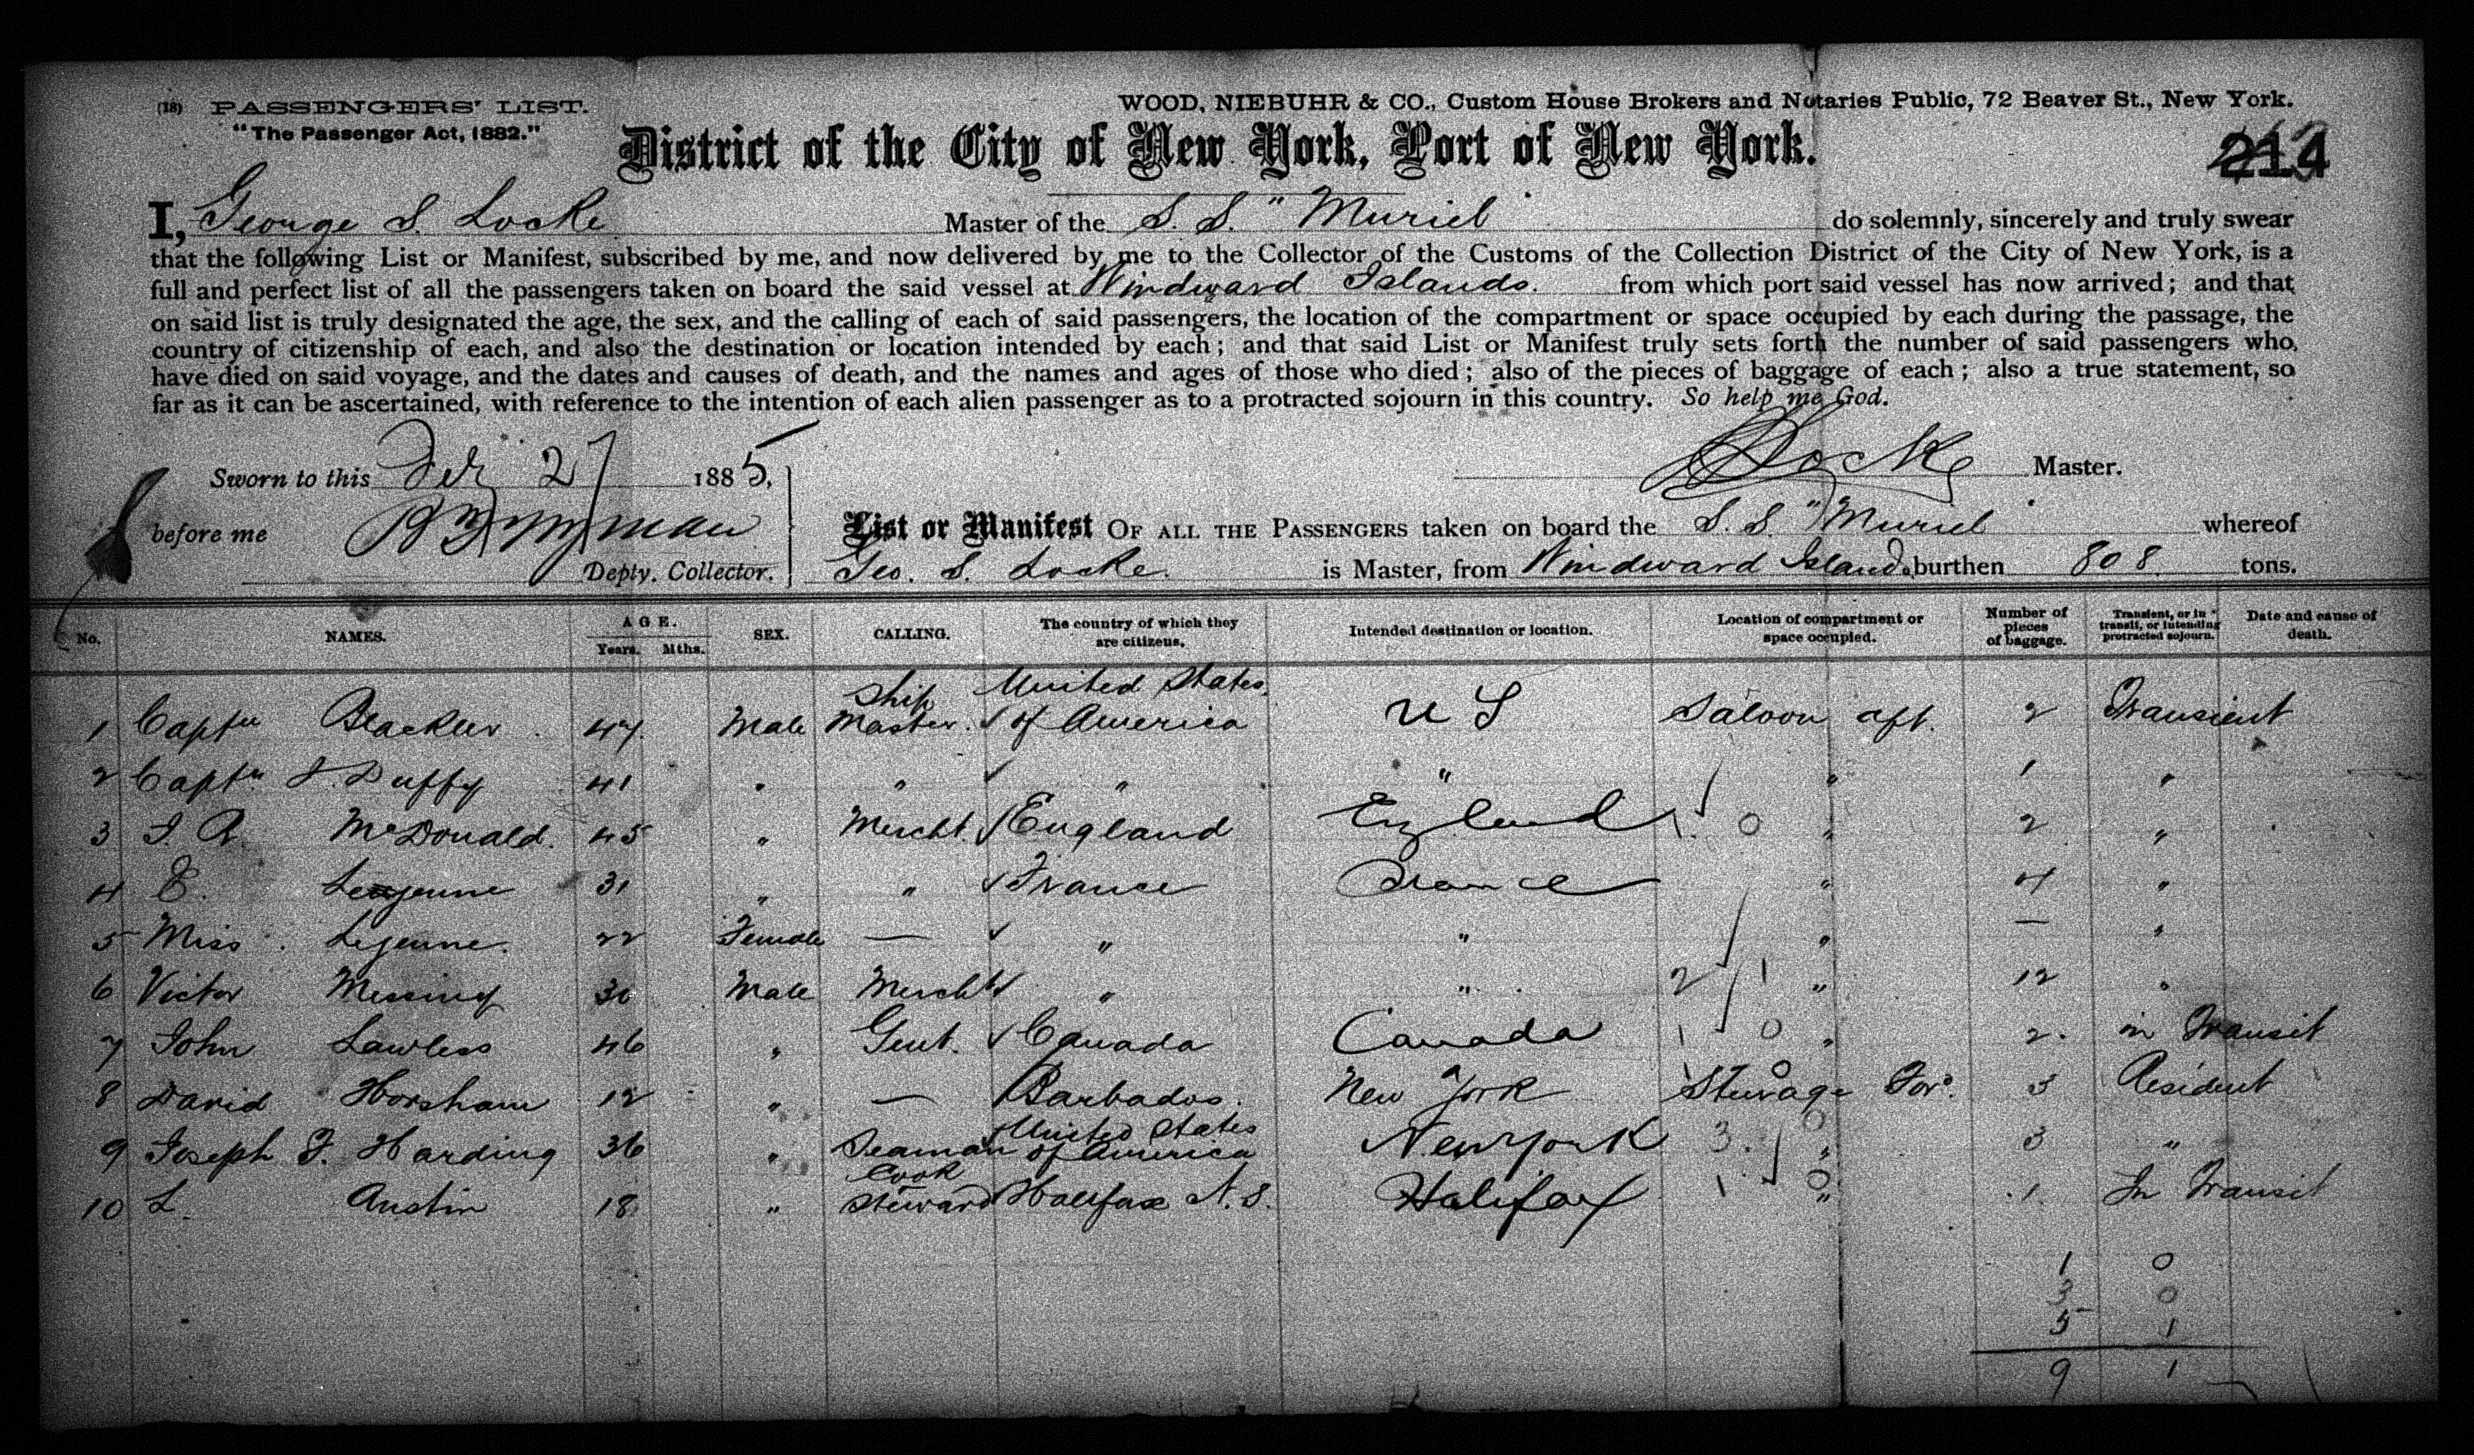 (18) PASSENGERS' LIST.
"The Passenger Act, 1882."
WOOD, NIEBUHR & CO., Custom House Brokers and Notaries Public, 72 Beaver St., New York.
District of the City of New York, Port of New York.
214
I, George S. Locke Master of the S. S. "Muriel" do solemnly, sincerely and truly swear
that the following List or Manifest, subscribed by me, and now delivered by me to the Collector of the Customs of the Collection District of the City of New York, is a
full and perfect list of all the passengers taken on board the said vessel at Windward Islands. from which port said vessel has now arrived; and that
on said list is truly designated the age, the sex, and the calling of each of said passengers, the location of the compartment or space occupied by each during the passage, the
country of citizenship of each, and also the destination or location intended by each; and that said List or Manifest truly sets forth the number of said passengers who
have died on said voyage, and the dates and causes of death, and the names and ages of those who died; also of the pieces of baggage of each; also a true statement, so
far as it can be ascertained, with reference to the intention of each alien passenger as to a protracted sojourn in this country. So help me God.
Sworn to this Feb 27 1885,
Locke Master.
before me
Depty. Collector.
List or Manifest OF ALL THE PASSENGERS taken on board the S. S. "Muriel" whereof
Geo. S. Locke. is Master, from Windward Islands, burthen 808 tons.
No. NAMES. AGE. Years. Mths. SEX. CALLING. The country of which they are citizens. Intended destination or location. Location of compartment or space occupied. Number of pieces of baggage. Transient, or in transit, or intending protracted sojourn. Date and cause of death.
1 Captn Blackler 47 Male Ship Master. ✓ United States of America U S Saloon aft. 2 Transient
2 Captn J. Duffy 41 " " ✓ " " " 1 "
3 McDonald. 45 " Mercht. ✓ England England 1. 0 " 2 "
4 E. Lejeune 31 " " ✓ France France " 4 "
5 Miss Lejeune. 22 Female — ✓ " " " — "
6 Victor Messing 30 Male Mercht ✓ " " 2 1 " 12 "
7 John Lawless 46 " Gent. ✓ Canada Canada 1 0 " 2. in Transit
8 David Horsham 12 " — Barbados. New York Steerage For'd. 3 Resident
9 Joseph F. Harding 36 " Seaman ✓ United States of America New York 3. 0 " 3 "
10 L. Austin 18 " Cook Steward Halifax N. S. Halifax 1 0 " 1 In Transit
1 0
3 0
5 1
9 1